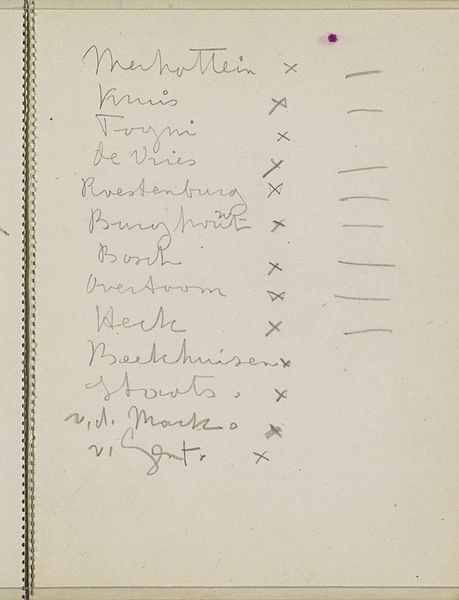 Merkottein ×
Kruis ×
Togni ×
de Vries ×
Roestenburg ×
Burghout ×
Bosch ×
Overtoom ×
Heck ×
Beekhuisen ×
Staats. ×
v.d. Mark. ×
v. Gent. ×